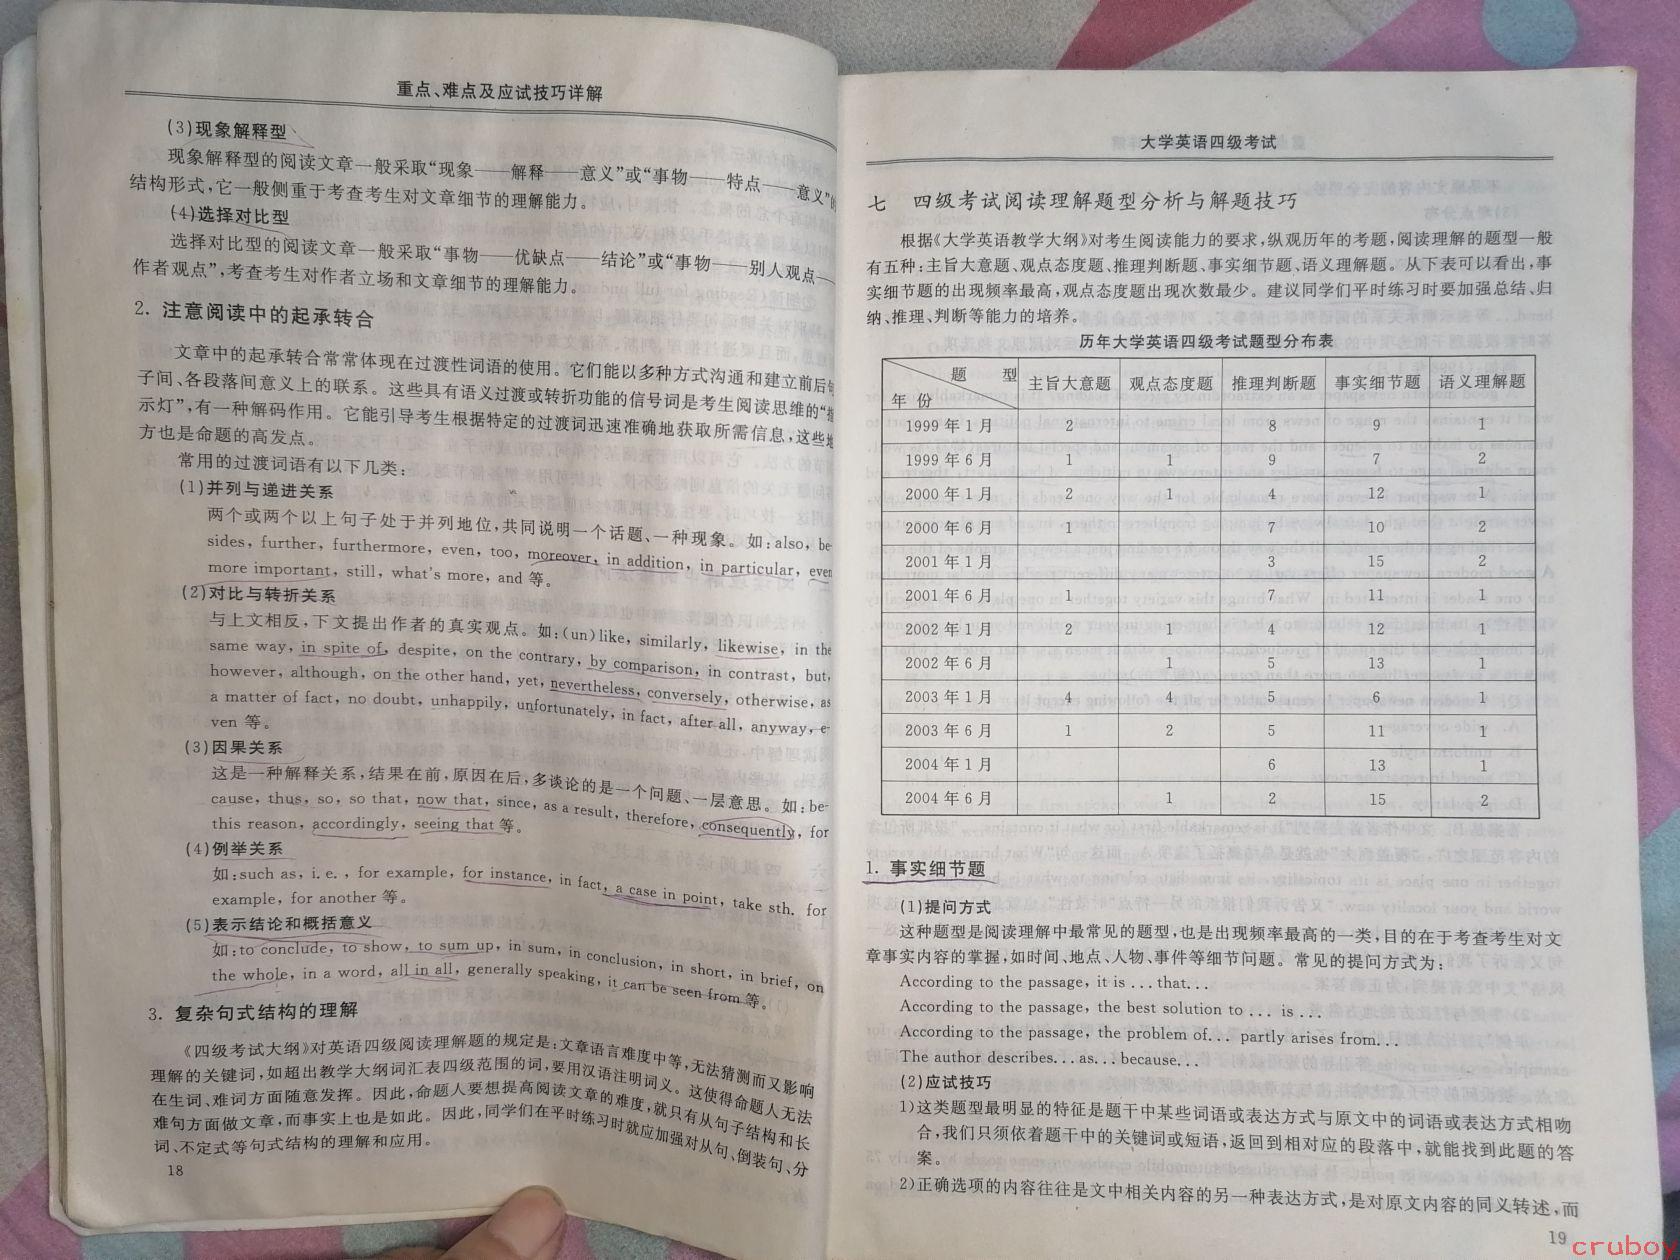 重点、难点及应试技巧详解
(3)现象解释型
现象解释型的阅读文章一般采取“现象——解释——意义”或“事物——特点——意义”的
结构形式,它一般侧重于考查考生对文章细节的理解能力。
(4)选择对比型
选择对比型的阅读文章一般采取“事物——优缺点——结论”或“事物——别人观点——
作者观点”,考查考生对作者立场和文章细节的理解能力。
2. 注意阅读中的起承转合
文章中的起承转合常常体现在过渡性词语的使用。它们能以多种方式沟通和建立前后句
子间、各段落间意义上的联系。这些具有语义过渡或转折功能的信号词是考生阅读思维的“指
示灯”,有一种解码作用。它能引导考生根据特定的过渡词迅速准确地获取所需信息,这些地
方也是命题的高发点。
常用的过渡词语有以下几类:
(1)并列与递进关系
两个或两个以上句子处于并列地位,共同说明一个话题、一种现象。如:also, be-
sides, further, furthermore, even, too, moreover, in addition, in particular, even
more important, still, what's more, and 等。
(2)对比与转折关系
与上文相反,下文提出作者的真实观点。如:(un)like, similarly, likewise, in the
same way, in spite of, despite, on the contrary, by comparison, in contrast, but,
however, although, on the other hand, yet, nevertheless, conversely, otherwise, as
a matter of fact, no doubt, unhappily, unfortunately, in fact, after all, anyway, e-
ven 等。
(3)因果关系
这是一种解释关系,结果在前,原因在后,多谈论的是一个问题、一层意思。如:be-
cause, thus, so, so that, now that, since, as a result, therefore, consequently, for
this reason, accordingly, seeing that 等。
(4)例举关系
如:such as, i. e. , for example, for instance, in fact, a case in point, take sth. for
example, for another 等。
(5)表示结论和概括意义
如:to conclude, to show, to sum up, in sum, in conclusion, in short, in brief, on
the whole, in a word, all in all, generally speaking, it can be seen from 等。
3. 复杂句式结构的理解
《四级考试大纲》对英语四级阅读理解题的规定是:文章语言难度中等,无法猜测而又影响
理解的关键词,如超出教学大纲词汇表四级范围的词,要用汉语注明词义。这使得命题人无法
在生词、难词方面随意发挥。因此,命题人要想提高阅读文章的难度,就只有从句子结构和长
难句方面做文章,而事实上也是如此。因此,同学们在平时练习时就应加强对从句、倒装句、分
词、不定式等句式结构的理解和应用。
18
大学英语四级考试
七 四级考试阅读理解题型分析与解题技巧
根据《大学英语教学大纲》对考生阅读能力的要求,纵观历年的考题,阅读理解的题型一般
有五种:主旨大意题、观点态度题、推理判断题、事实细节题、语义理解题。从下表可以看出,事
实细节题的出现频率最高,观点态度题出现次数最少。建议同学们平时练习时要加强总结、归
纳、推理、判断等能力的培养。
历年大学英语四级考试题型分布表
题 型 年 份 主旨大意题 观点态度题 推理判断题 事实细节题 语义理解题
1999 年 1 月 2 8 9 1
1999 年 6 月 1 1 9 7 2
2000 年 1 月 2 1 4 12 1
2000 年 6 月 1 7 10 2
2001 年 1 月 3 15 2
2001 年 6 月 1 7 11 1
2002 年 1 月 2 1 4 12 1
2002 年 6 月 1 5 13 1
2003 年 1 月 4 4 5 6 1
2003 年 6 月 1 2 5 11 1
2004 年 1 月 6 13 1
2004 年 6 月 1 2 15 2
1. 事实细节题
(1)提问方式
这种题型是阅读理解中最常见的题型,也是出现频率最高的一类,目的在于考查考生对文
章事实内容的掌握,如时间、地点、人物、事件等细节问题。常见的提问方式为:
According to the passage, it is ... that...
According to the passage, the best solution to ... is ...
According to the passage, the problem of... partly arises from...
The author describes... as... because...
(2)应试技巧
1)这类题型最明显的特征是题干中某些词语或表达方式与原文中的词语或表达方式相吻
合,我们只须依着题干中的关键词或短语,返回到相对应的段落中,就能找到此题的答
案。
2)正确选项的内容往往是文中相关内容的另一种表达方式,是对原文内容的同义转述,而
19
cruboy